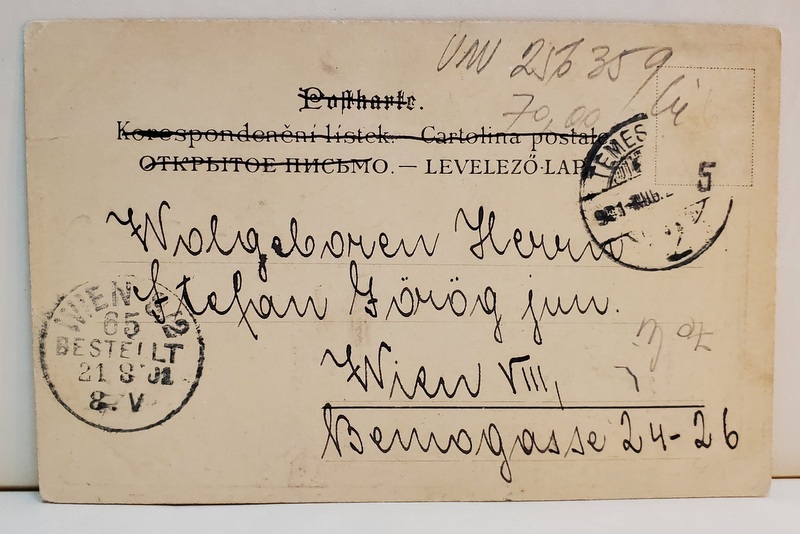 VAN 256 35 9
70,00
Postkarte.
Korespondenční lístek. — Cartolina postale
ОТКРЫТОЕ ПИСЬМО. — LEVELEZŐ-LAP
TEMES
5
2
Wolgeboren Herrn
Stefan Görög jun.
WIEN 8/2
65
BESTELLT
21 8 01
8. V
Wien VIII,
Bennogasse 24-26